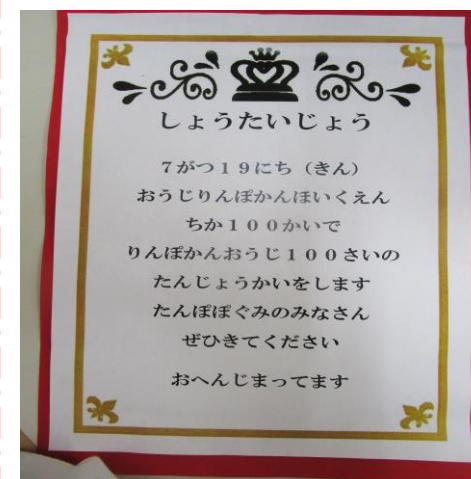 しょうたいじょう
7がつ19にち（きん）
おうじりんぽかんほいくえん
ちか100かいで
りんぽかんおうじ100さいの
たんじょうかいをします
たんぽぽぐみのみなさん
ぜひきてください
おへんじまってます